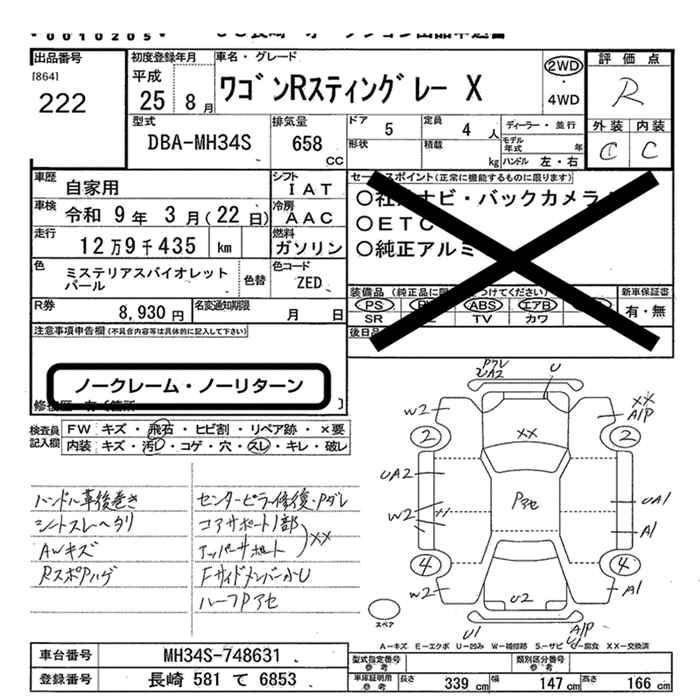 0010205
出品番号
[864]
222
初度登録年月
平成
25 8月
車名・グレード
ワゴンRスティングレー X
2WD
・
4WD
評価点
R
外装 内装
C C
型式
DBA-MH34S
排気量
658
CC
ドア
5
定員
4 人
形状
積載
kg
ディーラー・並行
モデル
年式
年
ハンドル 左・右
車歴
自家用
シフト
IAT
車検
令和 9年 3月(22日)
冷房
AAC
走行
12万9千435 km
燃料
ガソリン
色
ミステリアスバイオレット
パール
色替
色コード
ZED
R券
8,930円
名変通知期限
月 日
注意事項申告欄(不具合内容等は具体的に記入して下さい)
ノークレーム・ノーリターン
セールスポイント(正常に機能するものに限ります)
ナビ・バックカメラ
○ETC
○純正アルミ
装備品
新車保証書
PS
ABS
エアB
SR
TV
カワ
有・無
後日品
検査員
記入欄
FW キズ・飛石・ヒビ割・リペア跡・×要
内装 キズ・汚レ・コゲ・穴・スレ・キレ・破レ
ハンドル革後巻き
シートスレヘタリ
AWキズ
RスポPハゲ
センターピラー修復・Pダレ
コアサポート1部
アッパーサポート
XX
FサイドメンバーかU
ハーフPアセ
Pダレ
UA2
U
W2
XX
A/P
2
2
XX
UA2
Pアセ
UA1
W2
A1
4
4
W2
U2
A1
U1
A/P
U1
スペア
A-キズ E-エクボ U-凹み W-補修跡 S-サビ C-腐食 XX-交換済
車台番号
MH34S-748631
登録番号
長崎 581 て 6853
型式指定番号
参考
類別区分番号
参考
車庫証明用
参考
長さ
339 cm
幅
147 cm
高さ
166 cm